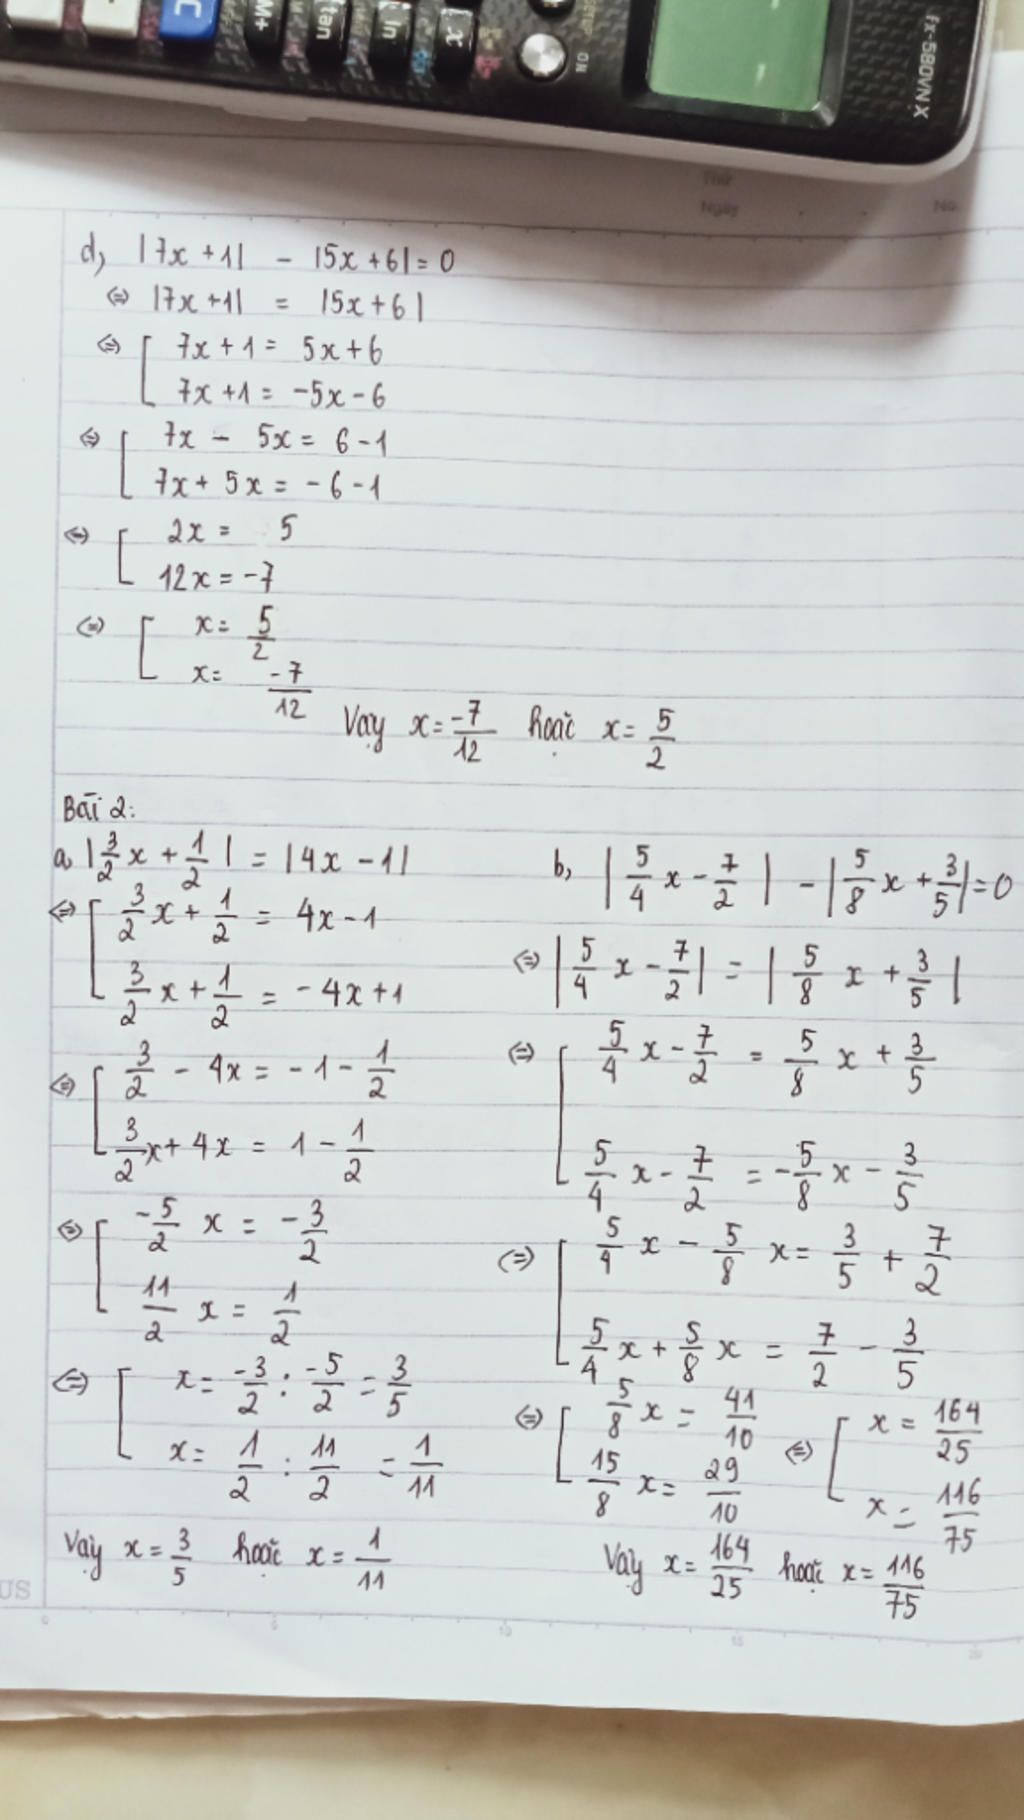 C
M+
tan
ln
x
ON
fx-580VN X
Thứ
Ngày
No.
d, |7x + 1| - |5x + 6| = 0
⇔ |7x + 1| = |5x + 6|
⇔ [ 7x + 1 = 5x + 6
7x + 1 = -5x - 6
⇔ [ 7x - 5x = 6 - 1
7x + 5x = -6 - 1
⇔ [ 2x = 5
12x = -7
⇔ [ x = 5/2
x = -7/12
Vậy x = -7/12 hoặc x = 5/2
Bài 2:
a, |3/2 x + 1/2| = |4x - 1|
⇔ [ 3/2 x + 1/2 = 4x - 1
3/2 x + 1/2 = -4x + 1
⇔ [ 3/2 - 4x = -1 - 1/2
3/2 x + 4x = 1 - 1/2
⇔ [ -5/2 x = -3/2
11/2 x = 1/2
⇔ [ x = -3/2 : -5/2 = 3/5
x = 1/2 : 11/2 = 1/11
Vậy x = 3/5 hoặc x = 1/11
b, |5/4 x - 7/2| - |5/8 x + 3/5| = 0
⇔ |5/4 x - 7/2| = |5/8 x + 3/5|
⇔ [ 5/4 x - 7/2 = 5/8 x + 3/5
5/4 x - 7/2 = -5/8 x - 3/5
⇔ [ 5/4 x - 5/8 x = 3/5 + 7/2
5/4 x + 5/8 x = 7/2 - 3/5
⇔ [ 5/8 x = 41/10 ⇔ [ x = 164/25
15/8 x = 29/10 x = 116/75
Vậy x = 164/25 hoặc x = 116/75
US
0 5 10 15 20